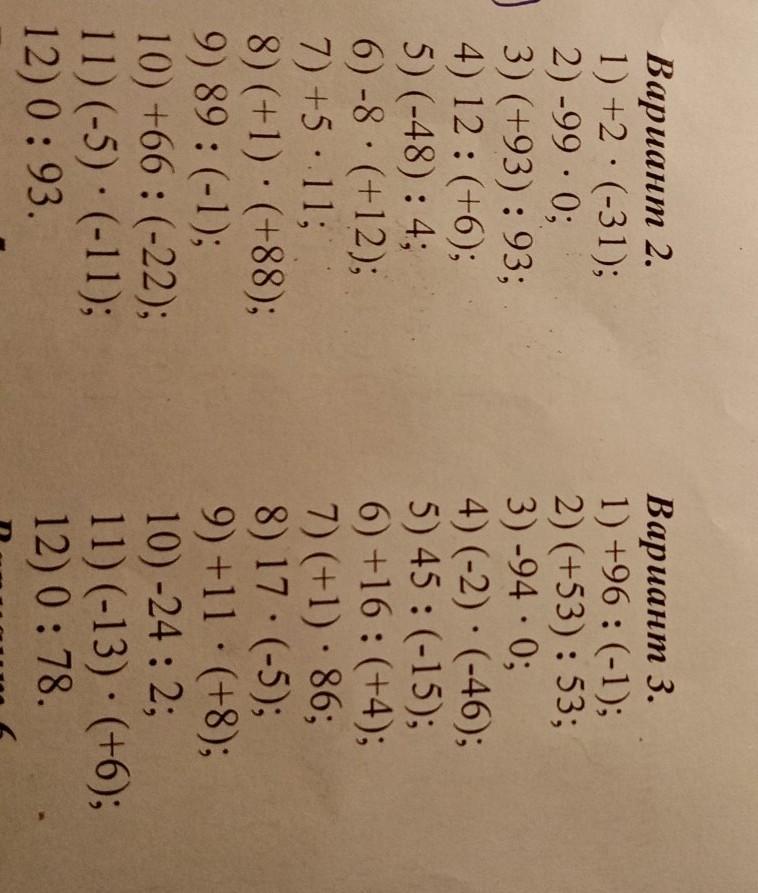 Вариант 2.
1) +2 · (-31);
2) -99 · 0;
3) (+93) : 93;
4) 12 : (+6);
5) (-48) : 4;
6) -8 · (+12);
7) +5 · 11;
8) (+1) · (+88);
9) 89 : (-1);
10) +66 : (-22);
11) (-5) · (-11);
12) 0 : 93.
Вариант 3.
1) +96 : (-1);
2) (+53) : 53;
3) -94 · 0;
4) (-2) · (-46);
5) 45 : (-15);
6) +16 : (+4);
7) (+1) · 86;
8) 17 · (-5);
9) +11 · (+8);
10) -24 : 2;
11) (-13) · (+6);
12) 0 : 78.